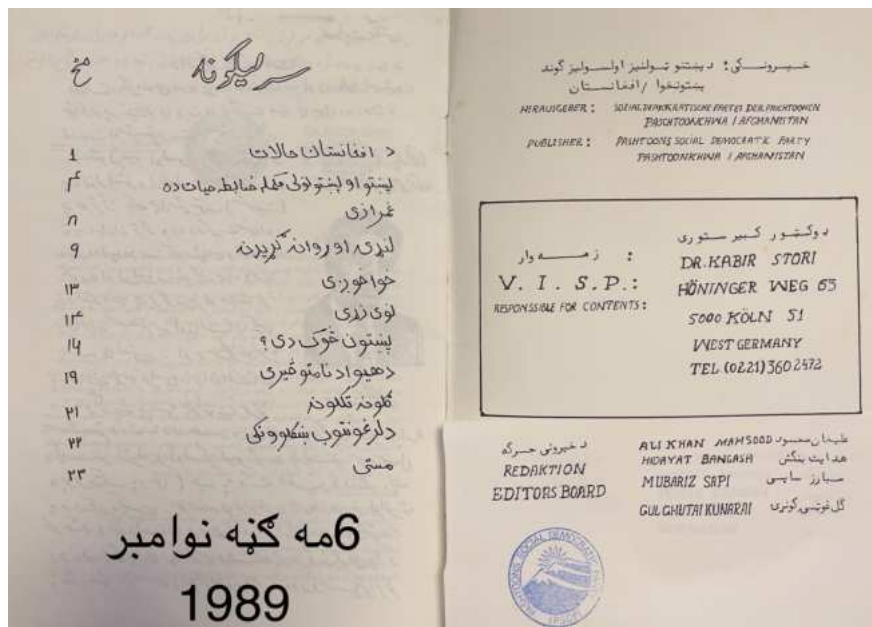 سرلیکونه مخ
د افغانستان حالات ۱
پښتو او پښتونولي مکمله ضابطه حیات ده ۴
غرازی ۸
لنډۍ او روانه ګړیدنه ۹
خواخوږي ۱۳
لوی زړی ۱۴
پښتون څوک دی؟ ۱۶
د هیواد نامتو څیری ۱۹
ګلونه ټګلونه ۲۱
۲۲
مستي ۲۳
6مه ګڼه نوامبر
1989
خپرونکی: د پښتنو ټولنیز اولسولیز ګوند
پښتونخوا / افغانستان
HERAUSGEBER: SOZIALDEMOKRATISCHE PARTEI DER PASCHTOONEN
PASCHTOONCHWA / AFGHANISTAN
PUBLISHER: PASHTOONS SOCIAL DEMOCRATIC PARTY
PASHTOONKHWA / AFGHANISTAN
زمه وار : دوکتور کبیر ستوری
V. I. S. P.: DR. KABIR STORI
RESPONSSIBLE FOR CONTENTS: HÖNINGER WEG 65
5000 KÖLN 51
WEST GERMANY
TEL (0221) 360 2472
د خپرونی جرګه
REDAKTION
EDITORS BOARD
ALI KHAN MAHSOOD علیخان محسود
HIDAYAT BANGASH هدایت بنګش
MUBARIZ SAPI مبارز ساپی
GULGHUTAI KUNARAI ګل غوټۍ کونړۍ
PASHTOONS SOCIAL DEMOCRATIC PARTY
(PSDP)